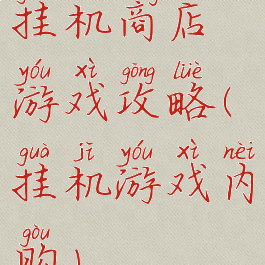 挂机商店
yóu xì gōng lüè
游戏攻略(
guà jī yóu xì nèi
挂机游戏内
gòu
购)